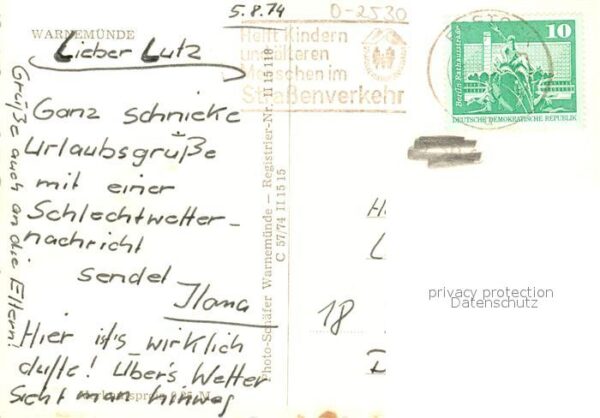 5.8.74
D-2530
WARNEMÜNDE
Lieber Lutz
Ganz schnieke
Urlaubsgrüße
mit einer
Schlechtwetter-
nachricht
sendet
Ilona
Hier ist's wirklich
dufte! Über's Wetter
sieht man hinweg
Grüße auch an die Eltern!
Helft Kindern
und älteren
Menschen im
Straßenverkehr
Photo-Schäfer Warnemünde – Registrier-Nr. II 15 118
C 57/74 II 15 15
Berlin, Rathausstraße
10
DEUTSCHE DEMOKRATISCHE REPUBLIK
H
L
18
D
privacy protection
Datenschutz